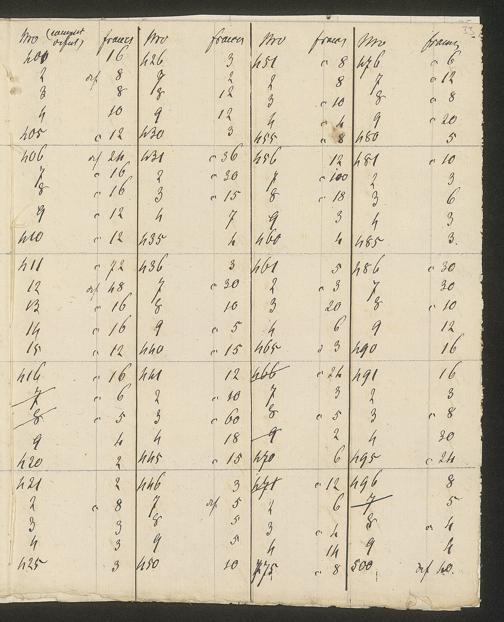 Nro francs Nro francs Nro francs Nro francs
401 16 426 3 451 " 8 476 " 6
2 8 7 2 2 8 7 " 12
3 8 8 12 3 " 10 8 " 8
4 10 9 12 4 " 4 9 " 20
405 " 12 430 3 455 " 8 480 5
406 24 431 " 36 456 12 481 " 10
7 " 16 2 " 30 7 " 100 2 3
8 " 16 3 " 15 8 " 18 3 6
9 " 12 4 7 9 3 4 3
410 " 12 435 4 460 4 485 3
411 " 72 436 3 461 5 486 " 30
12 48 7 " 30 2 " 3 7 30
13 " 16 8 10 3 20 8 " 10
14 " 16 9 " 5 4 6 9 12
15 " 12 440 " 15 465 3 490 16
416 " 16 441 12 466 " 24 491 16
7 " 6 2 " 10 7 3 2 3
8 " 5 3 " 60 8 " 5 3 " 8
9 4 4 18 9 2 4 30
420 2 445 " 15 470 6 495 " 24
421 2 446 3 471 " 12 496 8
2 " 8 7 5 2 6 7 5
3 3 8 5 3 " 4 8 " 4
4 3 9 5 4 14 9 4
425 3 450 10 475 " 8 500 40